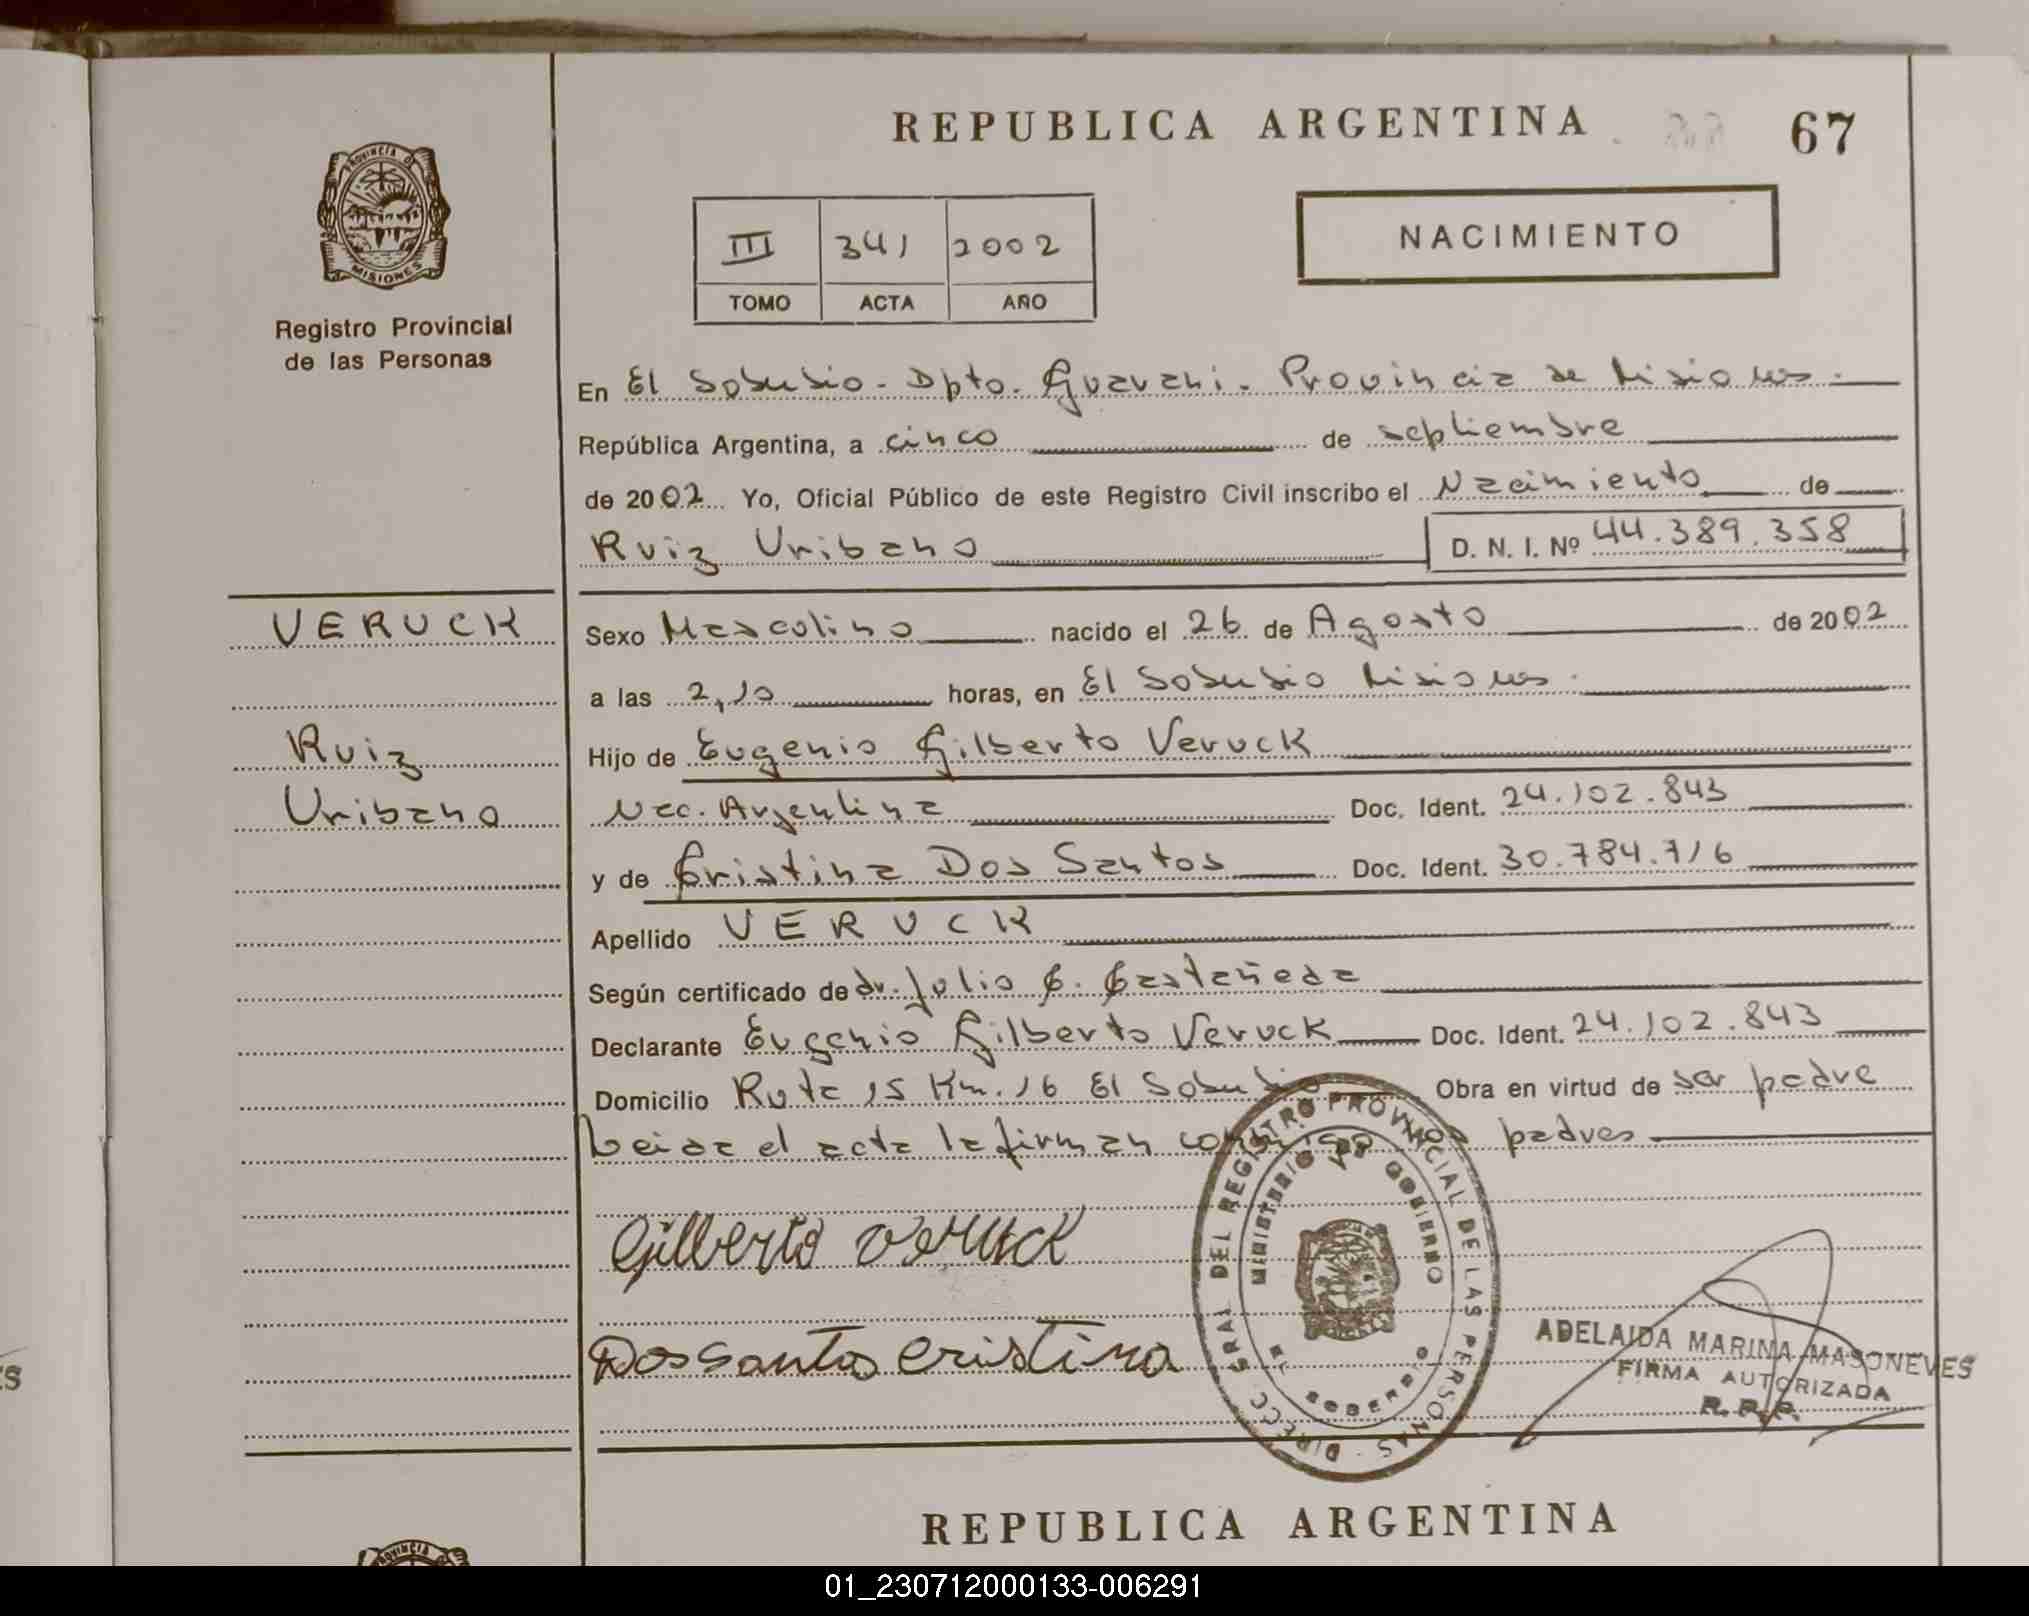 REPUBLICA ARGENTINA
67
PROVINCIA DE
MISIONES
Registro Provincial
de las Personas
III 341 2002
TOMO ACTA AÑO
NACIMIENTO
En El Soberbio - Dpto. Guarani. Provincia de Misiones.
República Argentina, a cinco de septiembre
de 2002 Yo, Oficial Público de este Registro Civil inscribo el Nacimiento de
Ruiz Uribano D. N. I. Nº 44.389.358
VERUCK
Ruiz
Uribano
Sexo Masculino nacido el 26 de Agosto de 2002
a las 2,10 horas, en El Soberbio Misiones.
Hijo de Eugenio Gilberto Veruck
Nac. Argentina Doc. Ident. 24.102.843
y de Cristina Dos Santos Doc. Ident. 30.784.716
Apellido VERUCK
Según certificado de dr. Julio C. Castañeda
Declarante Eugenio Gilberto Veruck Doc. Ident. 24.102.843
Domicilio Ruta 15 Km. 16 El Soberbio Obra en virtud de ser padre
Leida el acta la firman conmigo los padres
Gilberto Veruck
Dos Santos Cristina
DIRECC. GRAL. DEL REGISTRO PROVINCIAL DE LAS PERSONAS
MINISTERIO DE GOBIERNO
EL SOBERBIO
ADELAIDA MARINA MASONEVES
FIRMA AUTORIZADA
R. P. P.
ES
REPUBLICA ARGENTINA
PROVINCIA
01_230712000133-006291